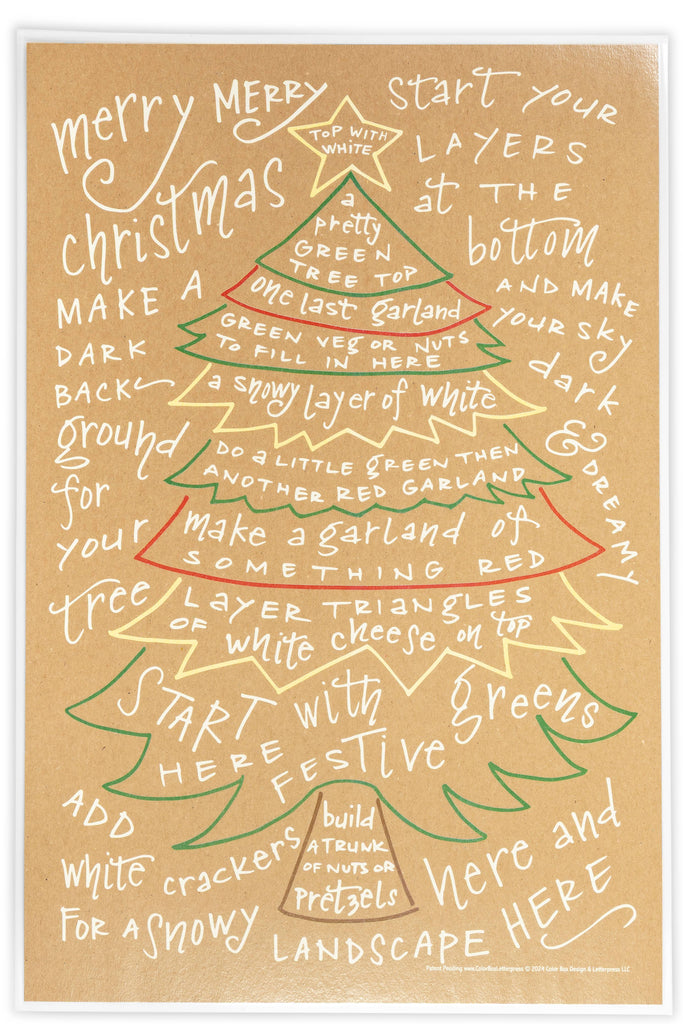 merry MERRY
christmas
start your
LAYERS
at THE
bottom
AND MAKE
YOUR SKY
dark
& DREAMY
MAKE A
DARK
BACK-
ground
for
your
tree
TOP WITH
WHITE
a
pretty
GREEN
TREE TOP
one last garland
GREEN VEG OR NUTS
TO FILL IN HERE
a snowy layer of white
DO a LITTLE green THEN
ANOTHER RED GARLAND
make a garland of
SOMETHING RED
LAYER TRIANGLES
OF white cheese on top
START with greens
HERE FESTIVE
build
A TRUNK
OF NUTS OR
pretzels
ADD
white crackers
FOR A SNOWY
LANDSCAPE
here and
HERE
Patent Pending www.ColorBoxLetterpress © 2024 Color Box Design & Letterpress LLC